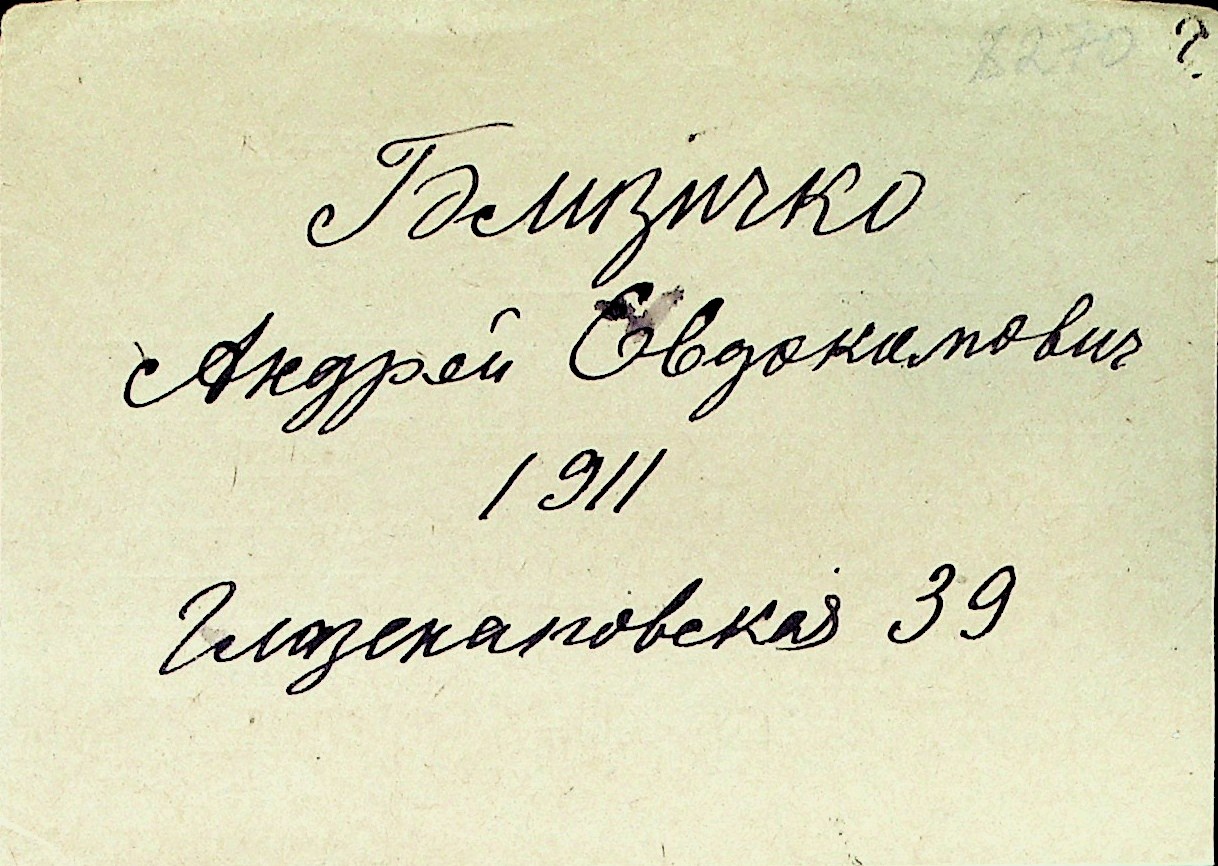 8270 2.
Близичко
Андрей Евдокимович
1911
Глазенаповская 39